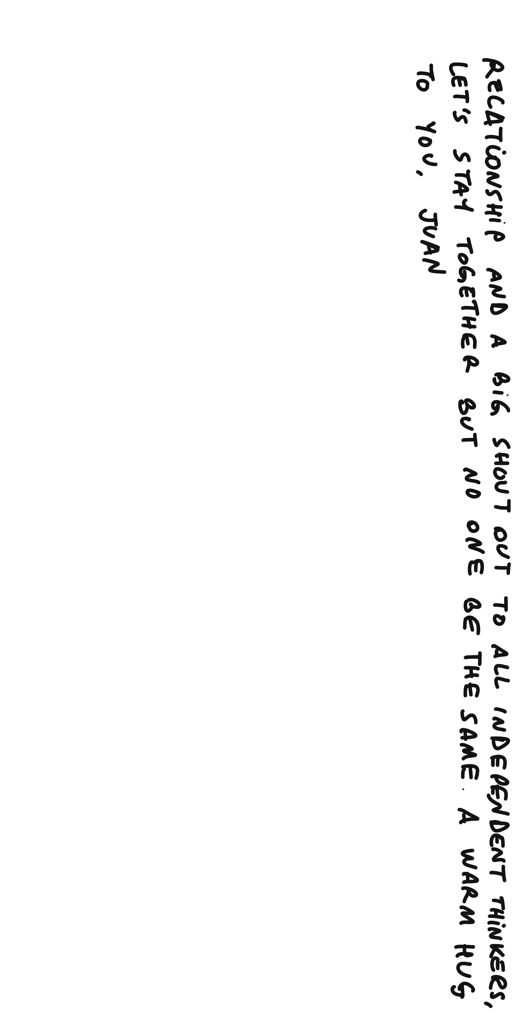 RELATiONSHiP AND A BiG SHOUT OUT TO ALL INDEPENDENT THiNKERS,
LET'S STAY TOGETHER BUT NO ONE BE THE SAME. A WARM HUG
TO YOU, JUAN